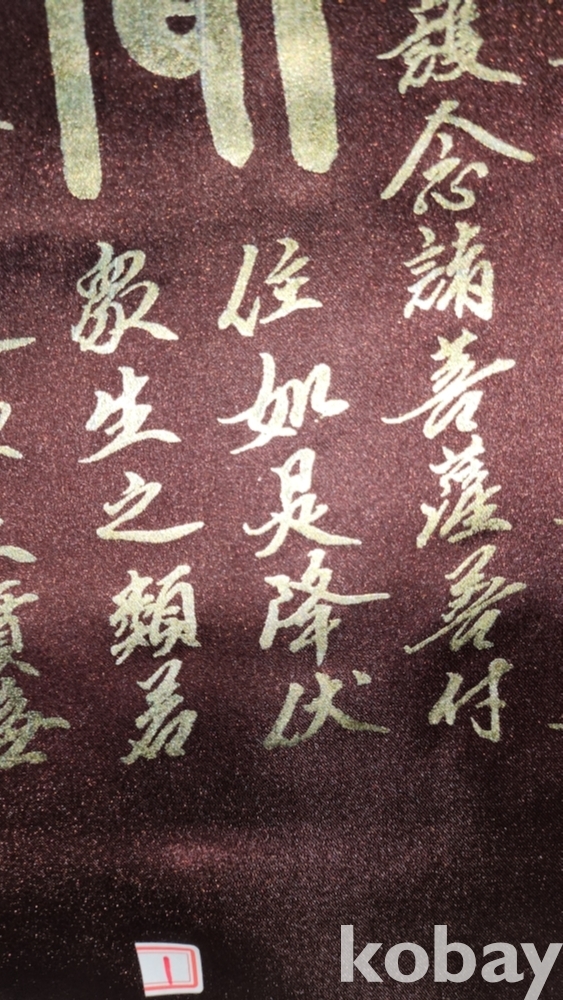 護念諸菩薩善付
住如是降伏
眾生之類若
實無
1
kobay